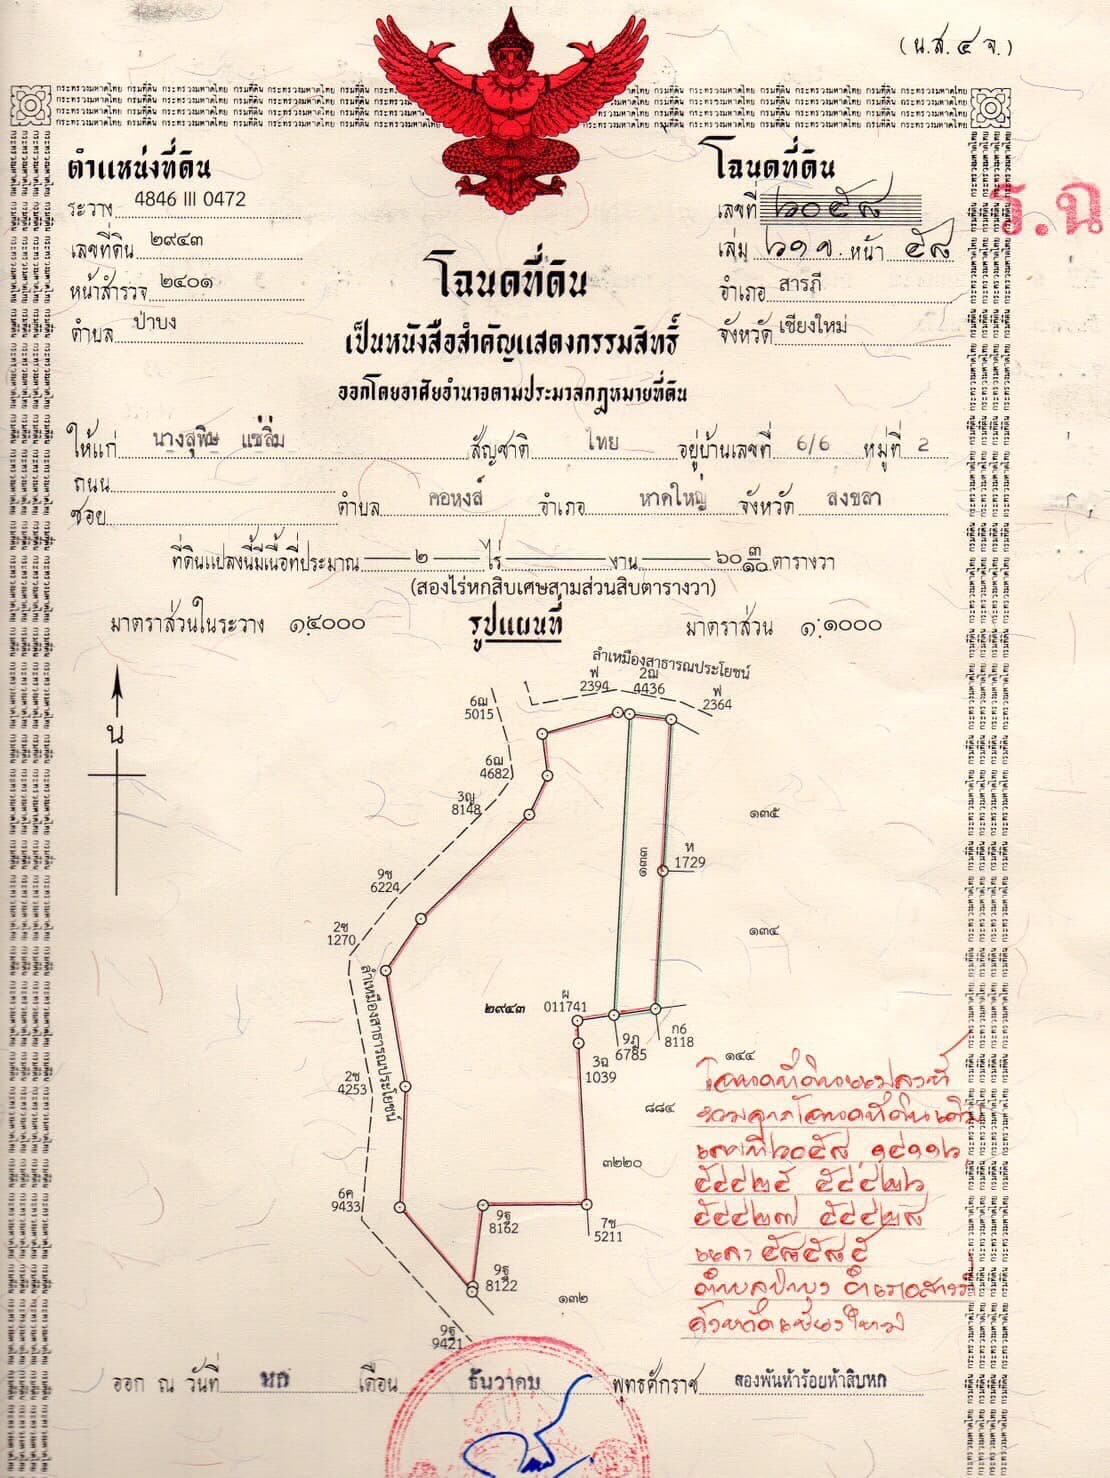 (น.ส. ๔ จ.)
ตำแหน่งที่ดิน
ระวาง 4846 III 0472
เลขที่ดิน ๒๙๔๓
หน้าสำรวจ ๒๔๐๑
ตำบล ป่าบง
โฉนดที่ดิน
เลขที่ ๖๐๕๘
เล่ม ๖๑ข. หน้า ๕๘
อำเภอ สารภี
จังหวัด เชียงใหม่
ร.ฉ
โฉนดที่ดิน
เป็นหนังสือสำคัญแสดงกรรมสิทธิ์
ออกโดยอาศัยอำนาจตามประมวลกฎหมายที่ดิน
ให้แก่ นางสุพิษ แซ่ลิ่ม สัญชาติ ไทย อยู่บ้านเลขที่ 6/6 หมู่ที่ 2
ถนน
ซอย ตำบล คอหงส์ อำเภอ หาดใหญ่ จังหวัด สงขลา
ที่ดินแปลงนี้มีเนื้อที่ประมาณ ๒ ไร่ งาน ๖๐ ๓/๑๐ ตารางวา
(สองไร่หกสิบเศษสามส่วนสิบตารางวา)
มาตราส่วนในระวาง ๑:๔๐๐๐ รูปแผนที่ มาตราส่วน ๑:๑๐๐๐
ลำเหมืองสาธารณประโยชน์
น
ฟ
2394
2ฌ
4436
ฟ
2364
6ฌ
5015
6ฌ
4682
3ญ
8148
๑๓๕
๑๓๓
ห
1729
9ช
6224
2ช
1270
๑๓๔
ลำเหมืองสาธารณประโยชน์
๒๙๔๓
ผ
011741
9ฎ
6785
ก6
8118
3ฉ
1039
๑๔๔
2ช
4253
๘๘๔
๓๒๒๐
6ค
9433
9ฐ
8162
7ช
5211
9ฐ
8122
๑๓๒
9ฐ
9421
โฉนดที่ดินแปลงนี้
รวมจากโฉนดที่ดินเดิม
เลขที่ ๖๐๕๘
และ ๕๘๕๘๕
ตำบลป่าบง อำเภอสารภี
จังหวัดเชียงใหม่
ออก ณ วันที่ หก เดือน ธันวาคม พุทธศักราช สองพันห้าร้อยห้าสิบหก